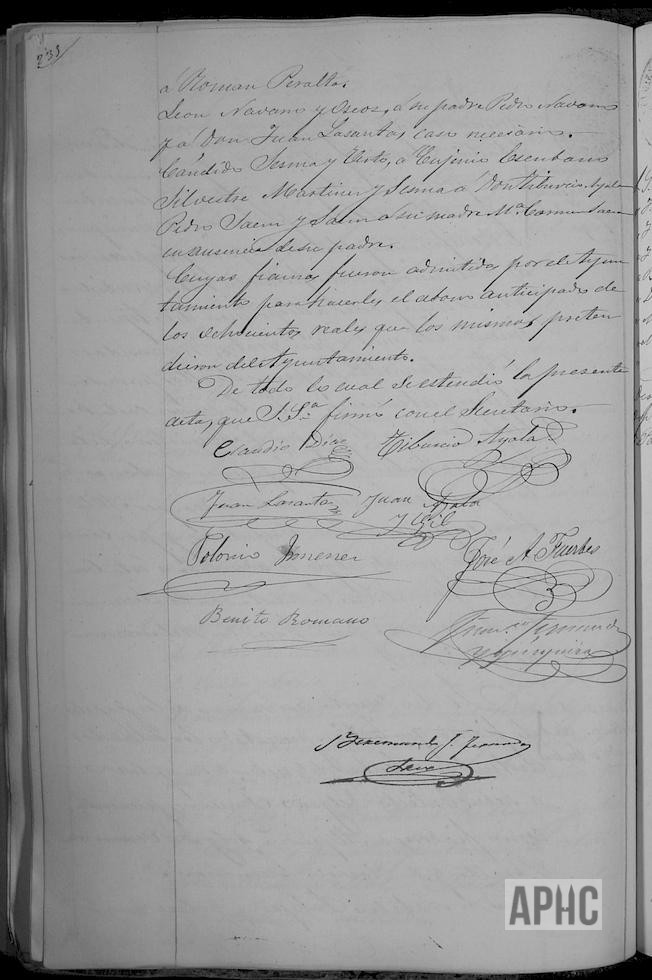 231
á Roman Peralta.
Leon Navarro y Oseos, á su padre Pedro Navarro
y á Don Juan Lasanta, caso necesario.
Cándido Sesma y Ezto, á Eujenio Escribano
Silvestre Martinez y Sesma á Don Tiburcio Ayala
Pedro Saenz y Saenz á su madre Mª Carmen Saenz
en ausencia de su padre.
Cuyas fianzas fueron admitidas por el Ayun
tamiento para hacerles el abono anticipado de
los ochocientos reales que los mismos preten
dieron del Ayuntamiento.
De todo lo cual se estendió la presente
acta, que S. Sª firmó con el Secretario.
Claudio Diaz Tiburcio Ayala
Juan Lasanta Juan Ayala
y Gil
Polonio Jimenez José A. Fuertes
Benito Romano Franco Fernandez
Bermundo F. Fernandez
APHC